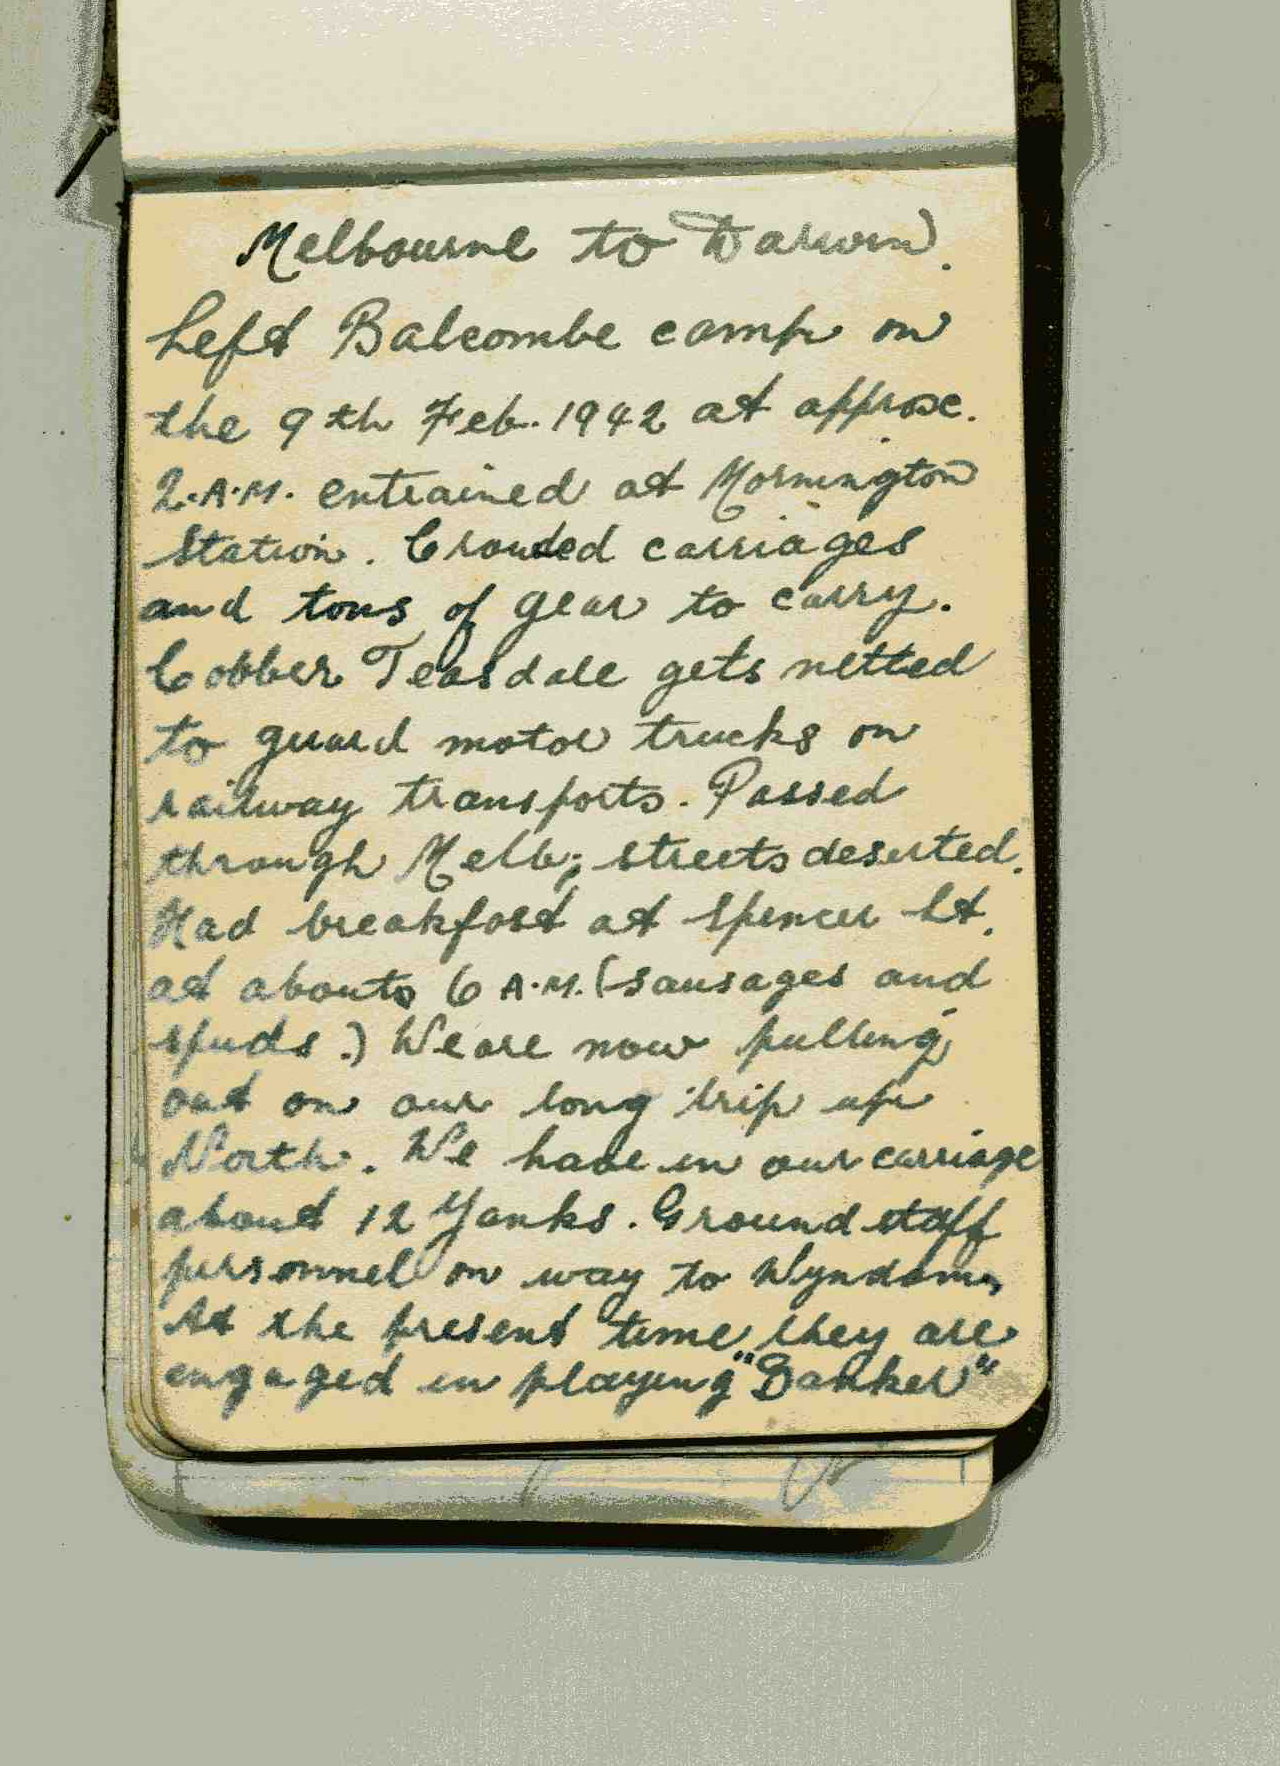 Melbourne to Darwin.
Left Balcombe camp on
the 9th Feb. 1942 at approx.
2.A.M. entrained at Mornington
Station. Crowded carriages
and tons of gear to carry.
Cobber Teasdale gets netted
to guard motor trucks on
railway transports. Passed
through Melb; streets deserted.
Had breakfast at Spencer St.
at about 6 A.M. (sausages and
spuds.) We are now pulling
out on our long trip up
North. We have in our carriage
about 12 Yanks. Ground staff
personnel on way to Wyndam,
At the present time they are
engaged in playing "Banker"